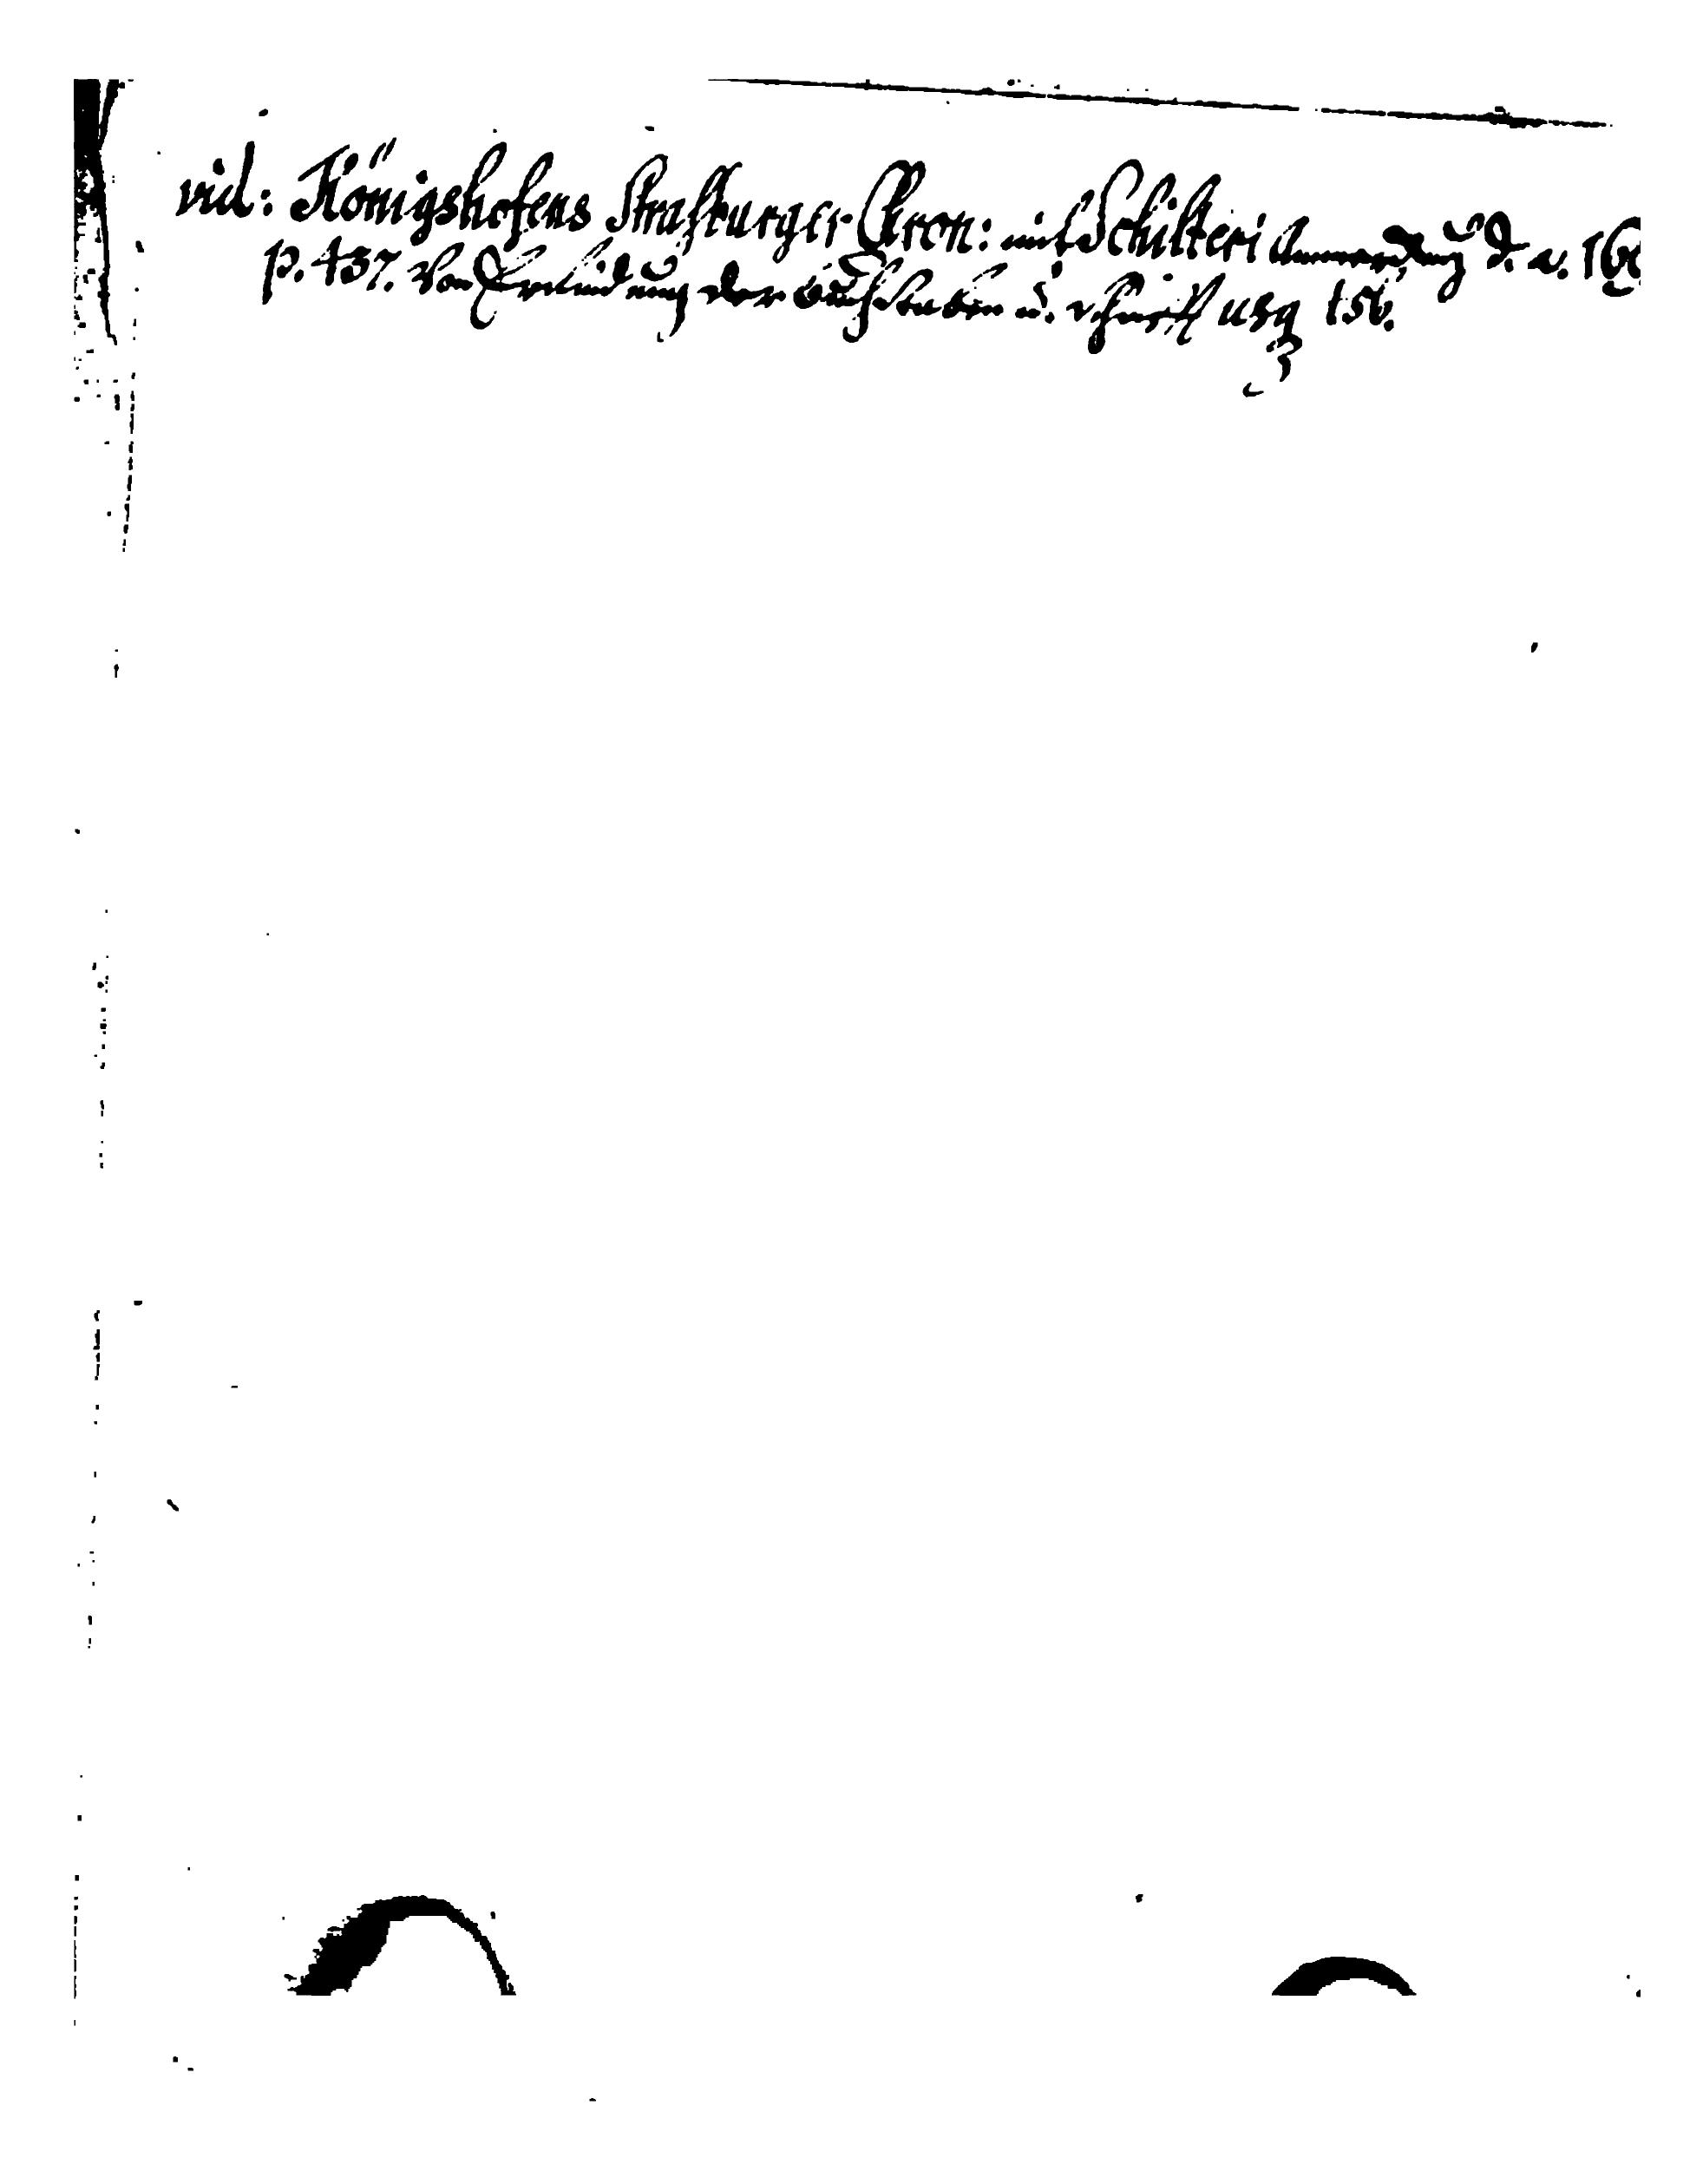 vid: Königshofens Straßburger Chron: mit Schilteri Anmerckung d. a. 16
p. 437. Von Erfindung der Buchstaben u. Schrifft usq 156.